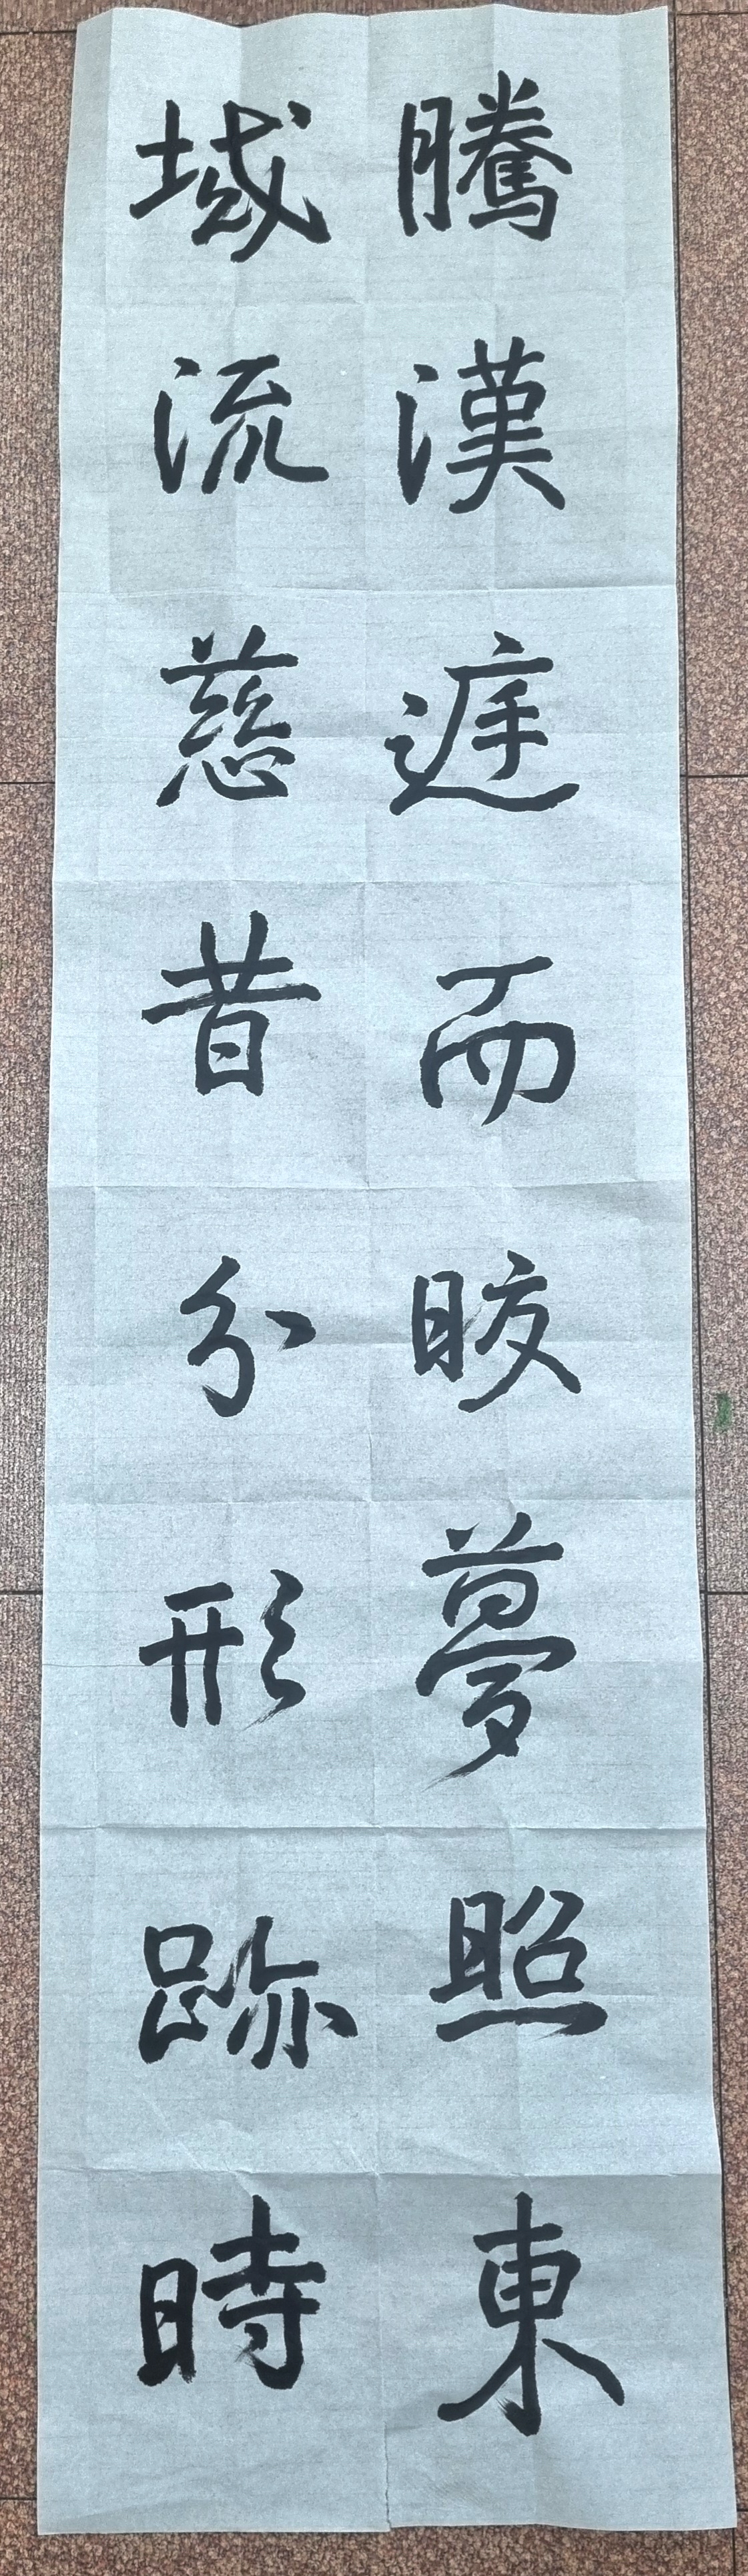 騰漢遅而皎夢照東
域流慈昔分形跡時